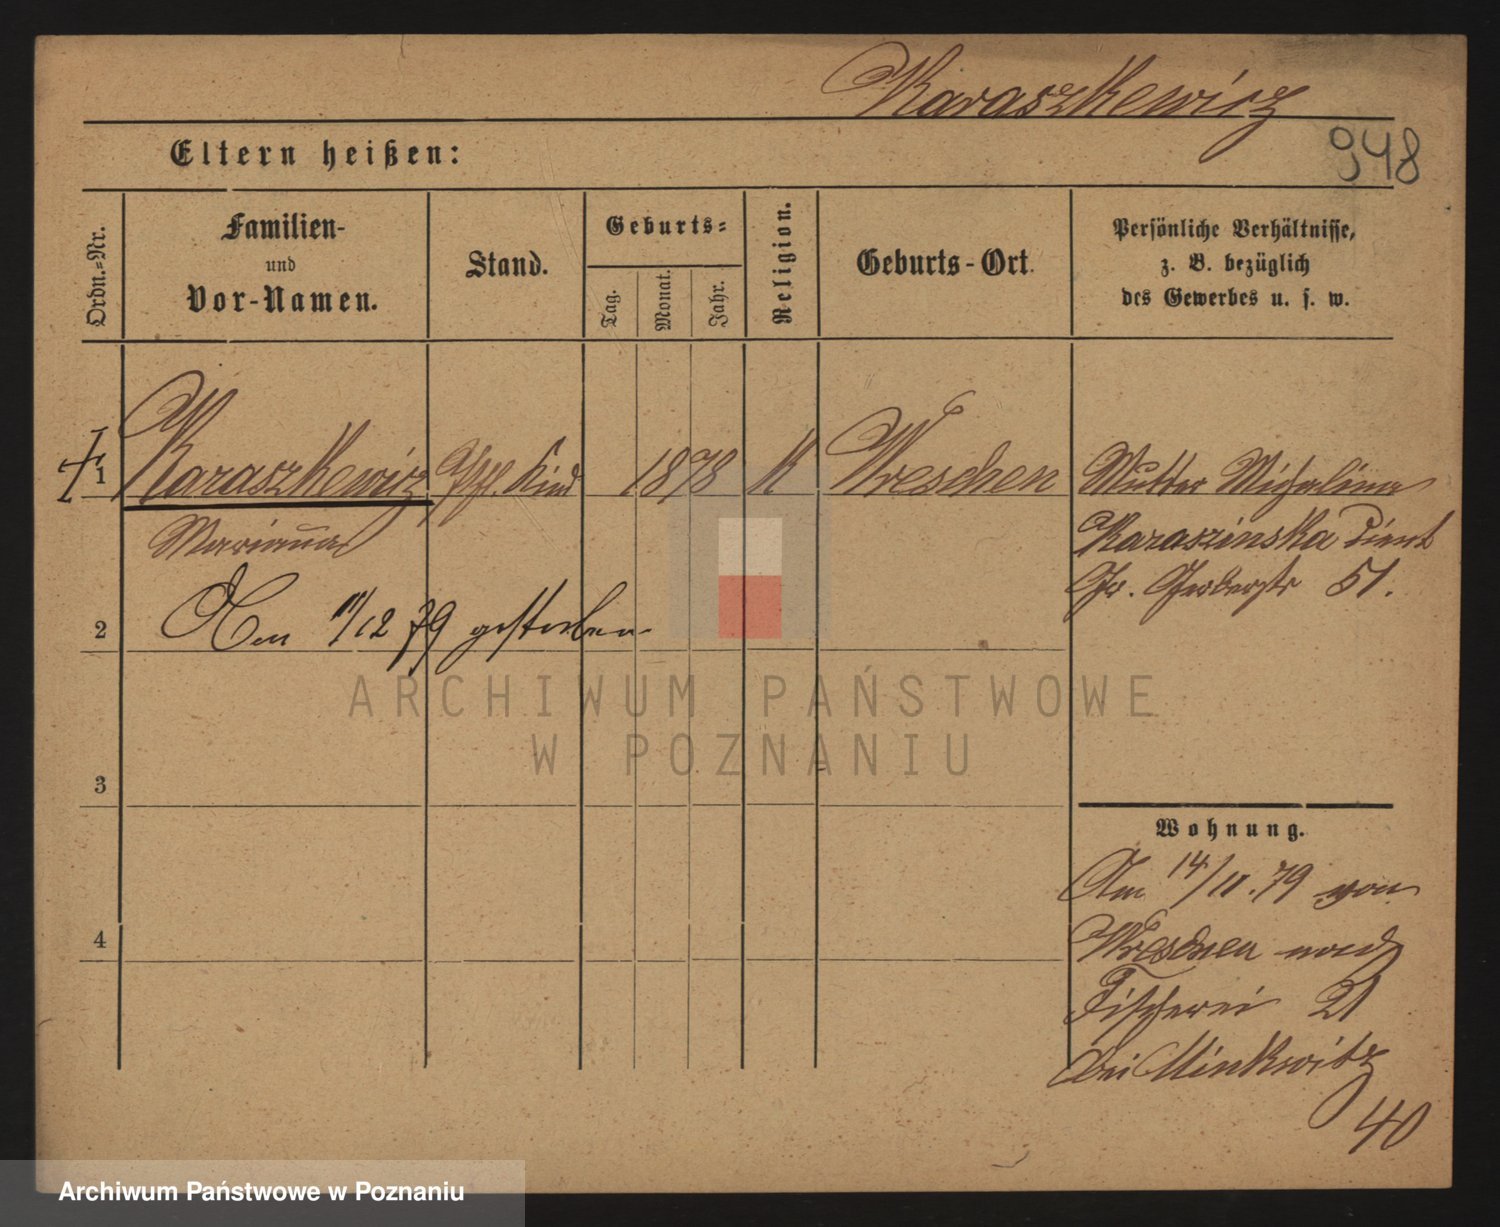 Karaszkewicz
948
Eltern heißen:
Ordn.-Nr.
Familien-
und
Vor-Namen.
Stand.
Geburts-
Tag.
Monat.
Jahr.
Religion.
Geburts-Ort.
Persönliche Verhältnisse,
z. B. bezüglich
des Gewerbes u. s. w.
1 Karaszkewicz Kind 1878 K Wreschen Mutter Michalina
Marianna
Karaszinska dient
Gr. Gerberstr 51.
2 Am 11/12 79 gestorben
ARCHIWUM PAŃSTWOWE
W POZNANIU
3
Wohnung.
Am 14/11.79 von
Wreschen nach
4
Fischerei 21
bei Minkwitz
40
Archiwum Państwowe w Poznaniu